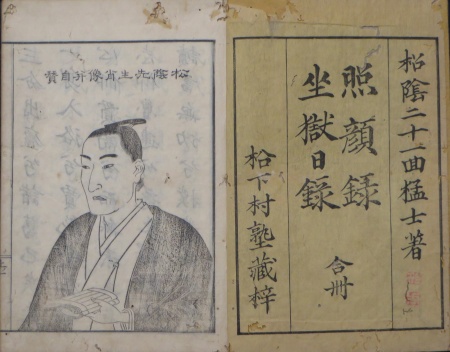 松陰二十一回猛士著
照顏録
坐獄日録
合冊
松下村塾藏梓
松陰先生肖像并自賛